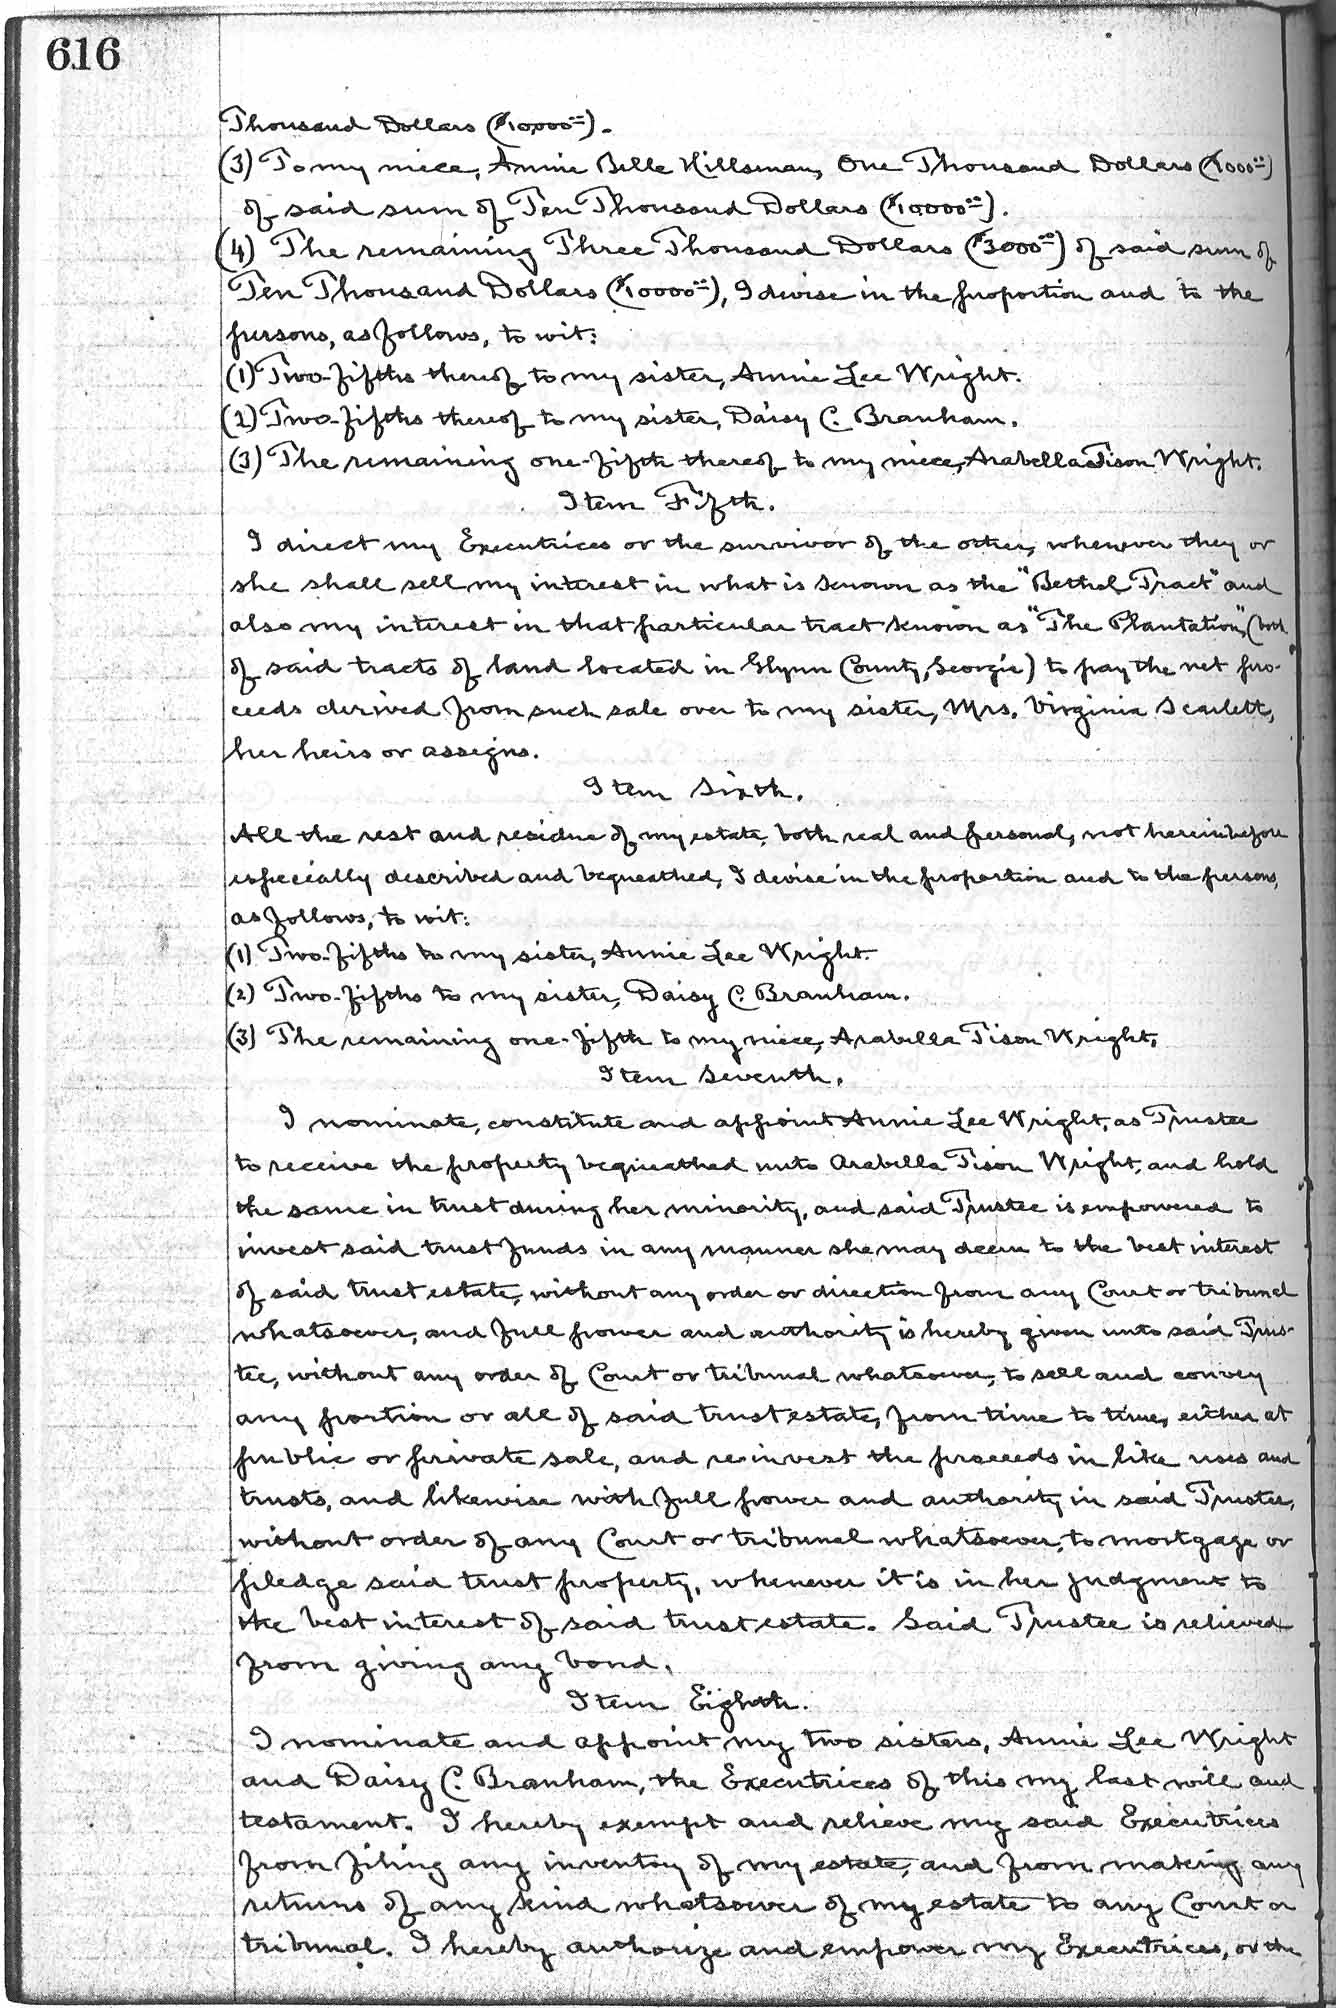 616
Thousand Dollars ($10,000⁰⁰).
(3) To my niece, Annie Belle Hillsman, One Thousand Dollars ($1000⁰⁰)
of said sum of Ten Thousand Dollars ($10000⁰⁰).
(4) The remaining Three Thousand Dollars ($3000⁰⁰) of said sum of
Ten Thousand Dollars ($10000⁰⁰), I devise in the proportion and to the
persons, as follows, to wit:
(1) Two-fifths thereof to my sister, Annie Lee Wright.
(2) Two-fifths thereof to my sister, Daisy C. Branham.
(3) The remaining one-fifth thereof to my niece, Arabella Tison Wright.
Item Fifth.
I direct my Executrices or the survivor of the other, whenever they or
she shall sell my interest in what is known as the "Bethel Tract" and
also my interest in that particular tract known as "The Plantation," (both
of said tracts of land located in Glynn County, Georgia) to pay the net pro-
ceeds derived from such sale over to my sister, Mrs. Virginia Scarlett,
her heirs or assigns.
Item Sixth.
All the rest and residue of my estate, both real and personal, not hereinbefore
especially described and bequeathed, I devise in the proportion and to the persons,
as follows, to wit:
(1) Two-fifths to my sister, Annie Lee Wright.
(2) Two-fifths to my sister, Daisy C. Branham.
(3) The remaining one-fifth to my niece, Arabella Tison Wright.
Item Seventh.
I nominate, constitute and appoint Annie Lee Wright, as Trustee
to receive the property bequeathed unto Arabella Tison Wright, and hold
the same in trust during her minority, and said Trustee is empowered to
invest said trust funds in any manner she may deem to the best interest
of said trust estate, without any order or direction from any Court or tribunal
whatsoever, and full power and authority is hereby given unto said Trus-
tee, without any order of Court or tribunal whatsoever, to sell and convey
any portion or all of said trust estate, from time to time, either at
public or private sale, and re-invest the proceeds in like uses and
trusts, and likewise with full power and authority in said Trustee,
without order of any Court or tribunal whatsoever, to mortgage or
pledge said trust property, whenever it is in her judgment to
the best interest of said trust estate. Said Trustee is relieved
from giving any bond.
Item Eighth.
I nominate and appoint my two sisters, Annie Lee Wright
and Daisy C. Branham, the Executrices of this my last will and
testament. I hereby exempt and relieve my said Executrices
from filing any inventory of my estate, and from making any
returns of any kind whatsoever of my estate to any Court or
tribunal. I hereby authorize and empower my Executrices, or the